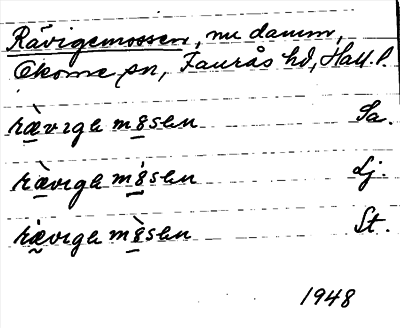 Rävigemossen, nu damm,
Ekome sn, Faurås hd, Hall. l.
ræ̀vıga mɞsen Sa.
ræ̀vıga mɞ́sen Lj.
ræ̀vıga mɞ̀sen St.
1948